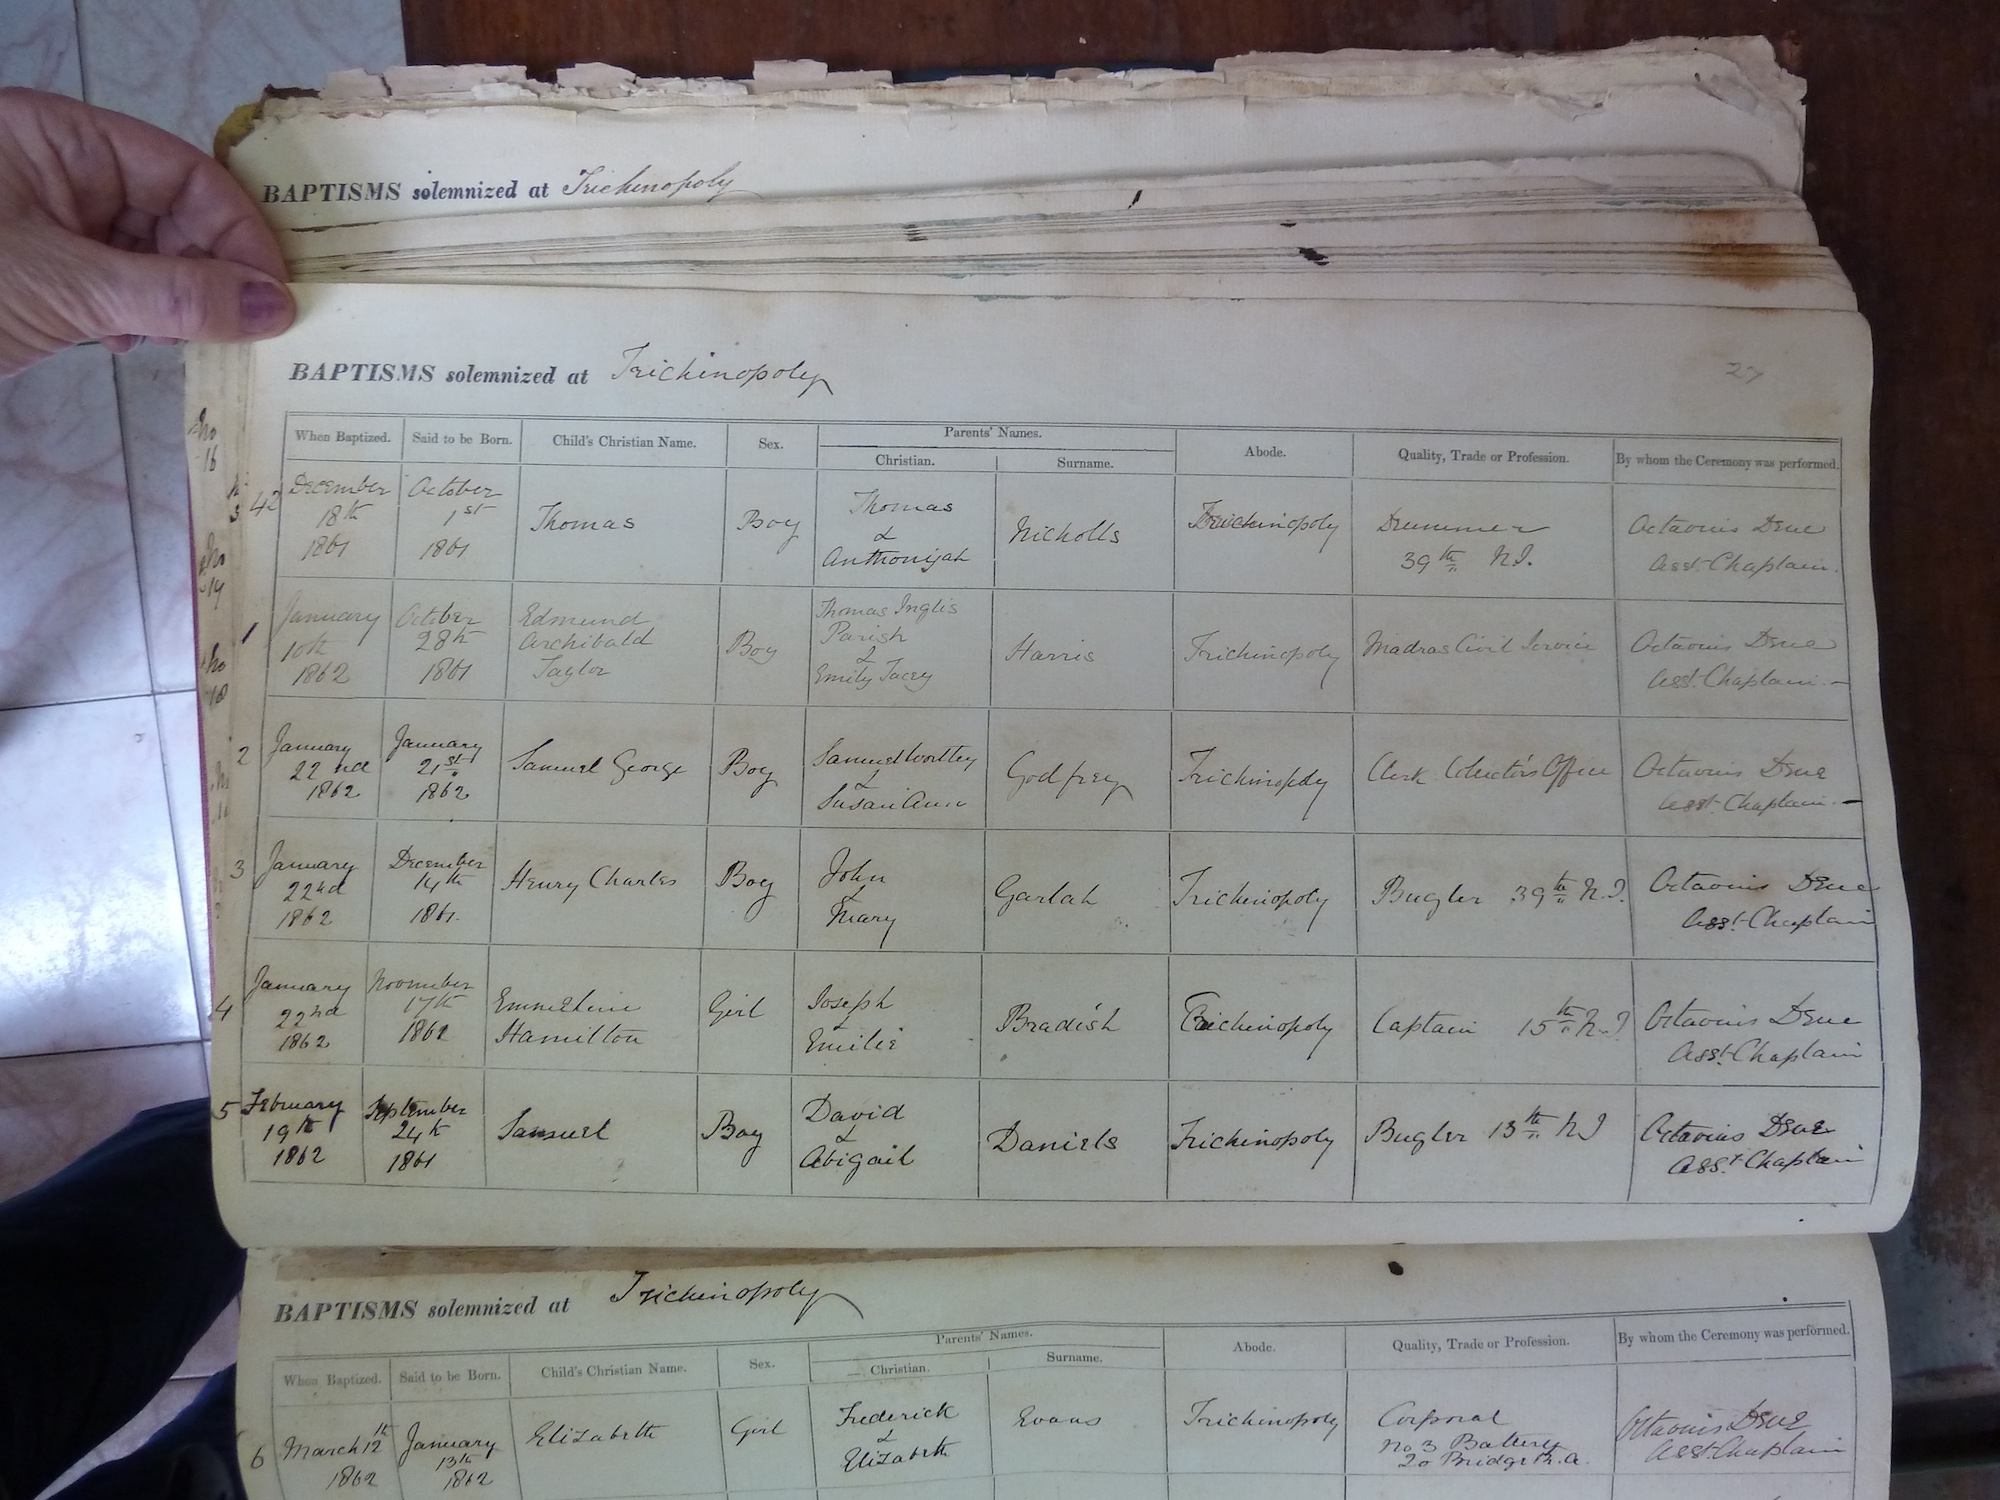 BAPTISMS solemnized at Trichinopoly
BAPTISMS solemnized at Trichinopoly
27
When Baptized. Said to be Born. Child's Christian Name. Sex. Parents' Names. Abode. Quality, Trade or Profession. By whom the Ceremony was performed.
Christian. Surname.
42 December 18th 1861 October 1st 1861 Thomas Boy Thomas & Anthonijah Nicholls Trichinopoly Drummer 39th N.I. Octavius Dene Asst. Chaplain.
1 January 10th 1862 October 28th 1861 Edmund Archibald Taylor Boy Thomas Inglis Parish & Emily Harris Trichinopoly Madras Civil Service Octavius Dene Asst. Chaplain.
2 January 22nd 1862 January 21st 1862 Samuel George Boy Samuel Wortley & Susan Ann Godfrey Trichinopoly Clerk Collector's Office Octavius Dene Asst. Chaplain.
3 January 22nd 1862 December 14th 1861. Henry Charles Boy John & Mary Garlah Trichinopoly Bugler 39th N.I. Octavius Dene Asst. Chaplain
4 January 22nd 1862 November 17th 1862 Emmeline Hamilton Girl Joseph & Emilie Bradish Trichinopoly Captain 15th N.I Octavius Dene Asst. Chaplain
5 February 19th 1862 September 24th 1861 Samuel Boy David & Abigail Daniels Trichinopoly Bugler 13th N I Octavius Dene Asst. Chaplain
BAPTISMS solemnized at Trichinopoly
When Baptized. Said to be Born. Child's Christian Name. Sex. Parents' Names. Abode. Quality, Trade or Profession. By whom the Ceremony was performed.
Christian. Surname.
6 March 12th 1862 January 13th 1862 Elizabeth Girl Frederick & Elizabeth Evans Trichinopoly Corporal No 3 Battery 20 Bridge R.A. Octavius Dene Asst. Chaplain